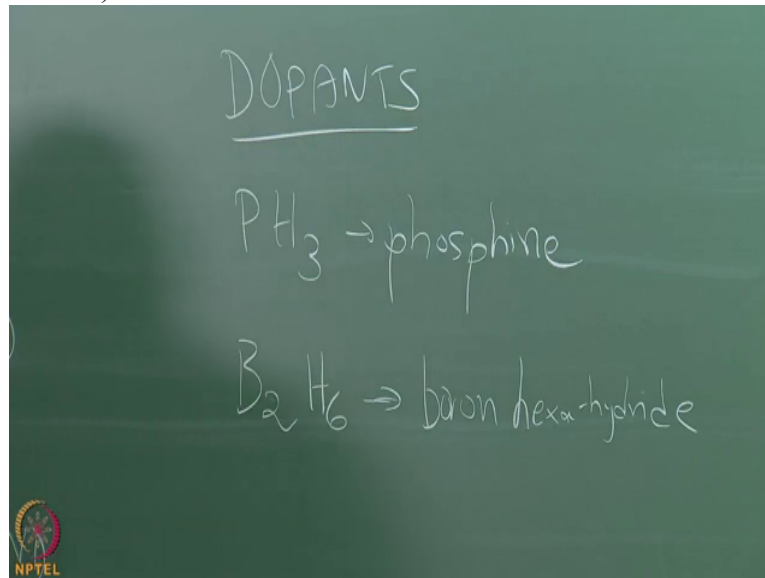 DOPANTS
PH₃ → phosphine
B₂H₆ → boron hexa-hydride
NPTEL